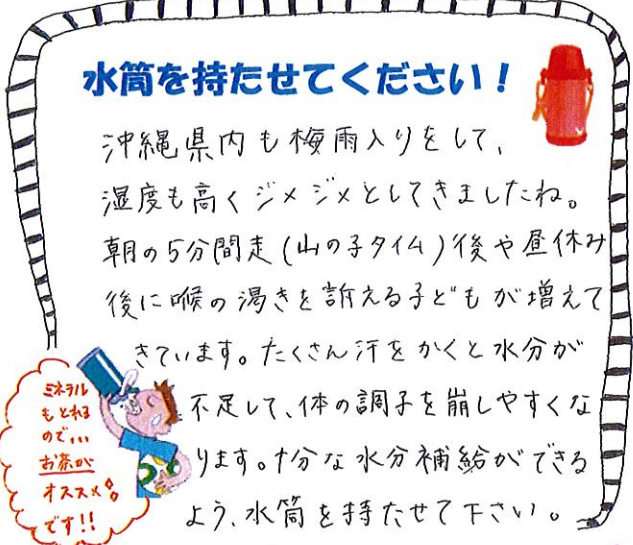 水筒を持たせてください！
沖縄県内も梅雨入りをして、
湿度も高くジメジメとしてきましたね。
朝の5分間走(山の子タイム)後や昼休み
後に喉の渇きを訴える子どもが増えて
きています。たくさん汗をかくと水分が
不足して、体の調子を崩しやすくな
ります。十分な水分補給ができる
よう、水筒を持たせて下さい。
ミネラル
もとれる
ので…
お茶が
オススメ
です!!